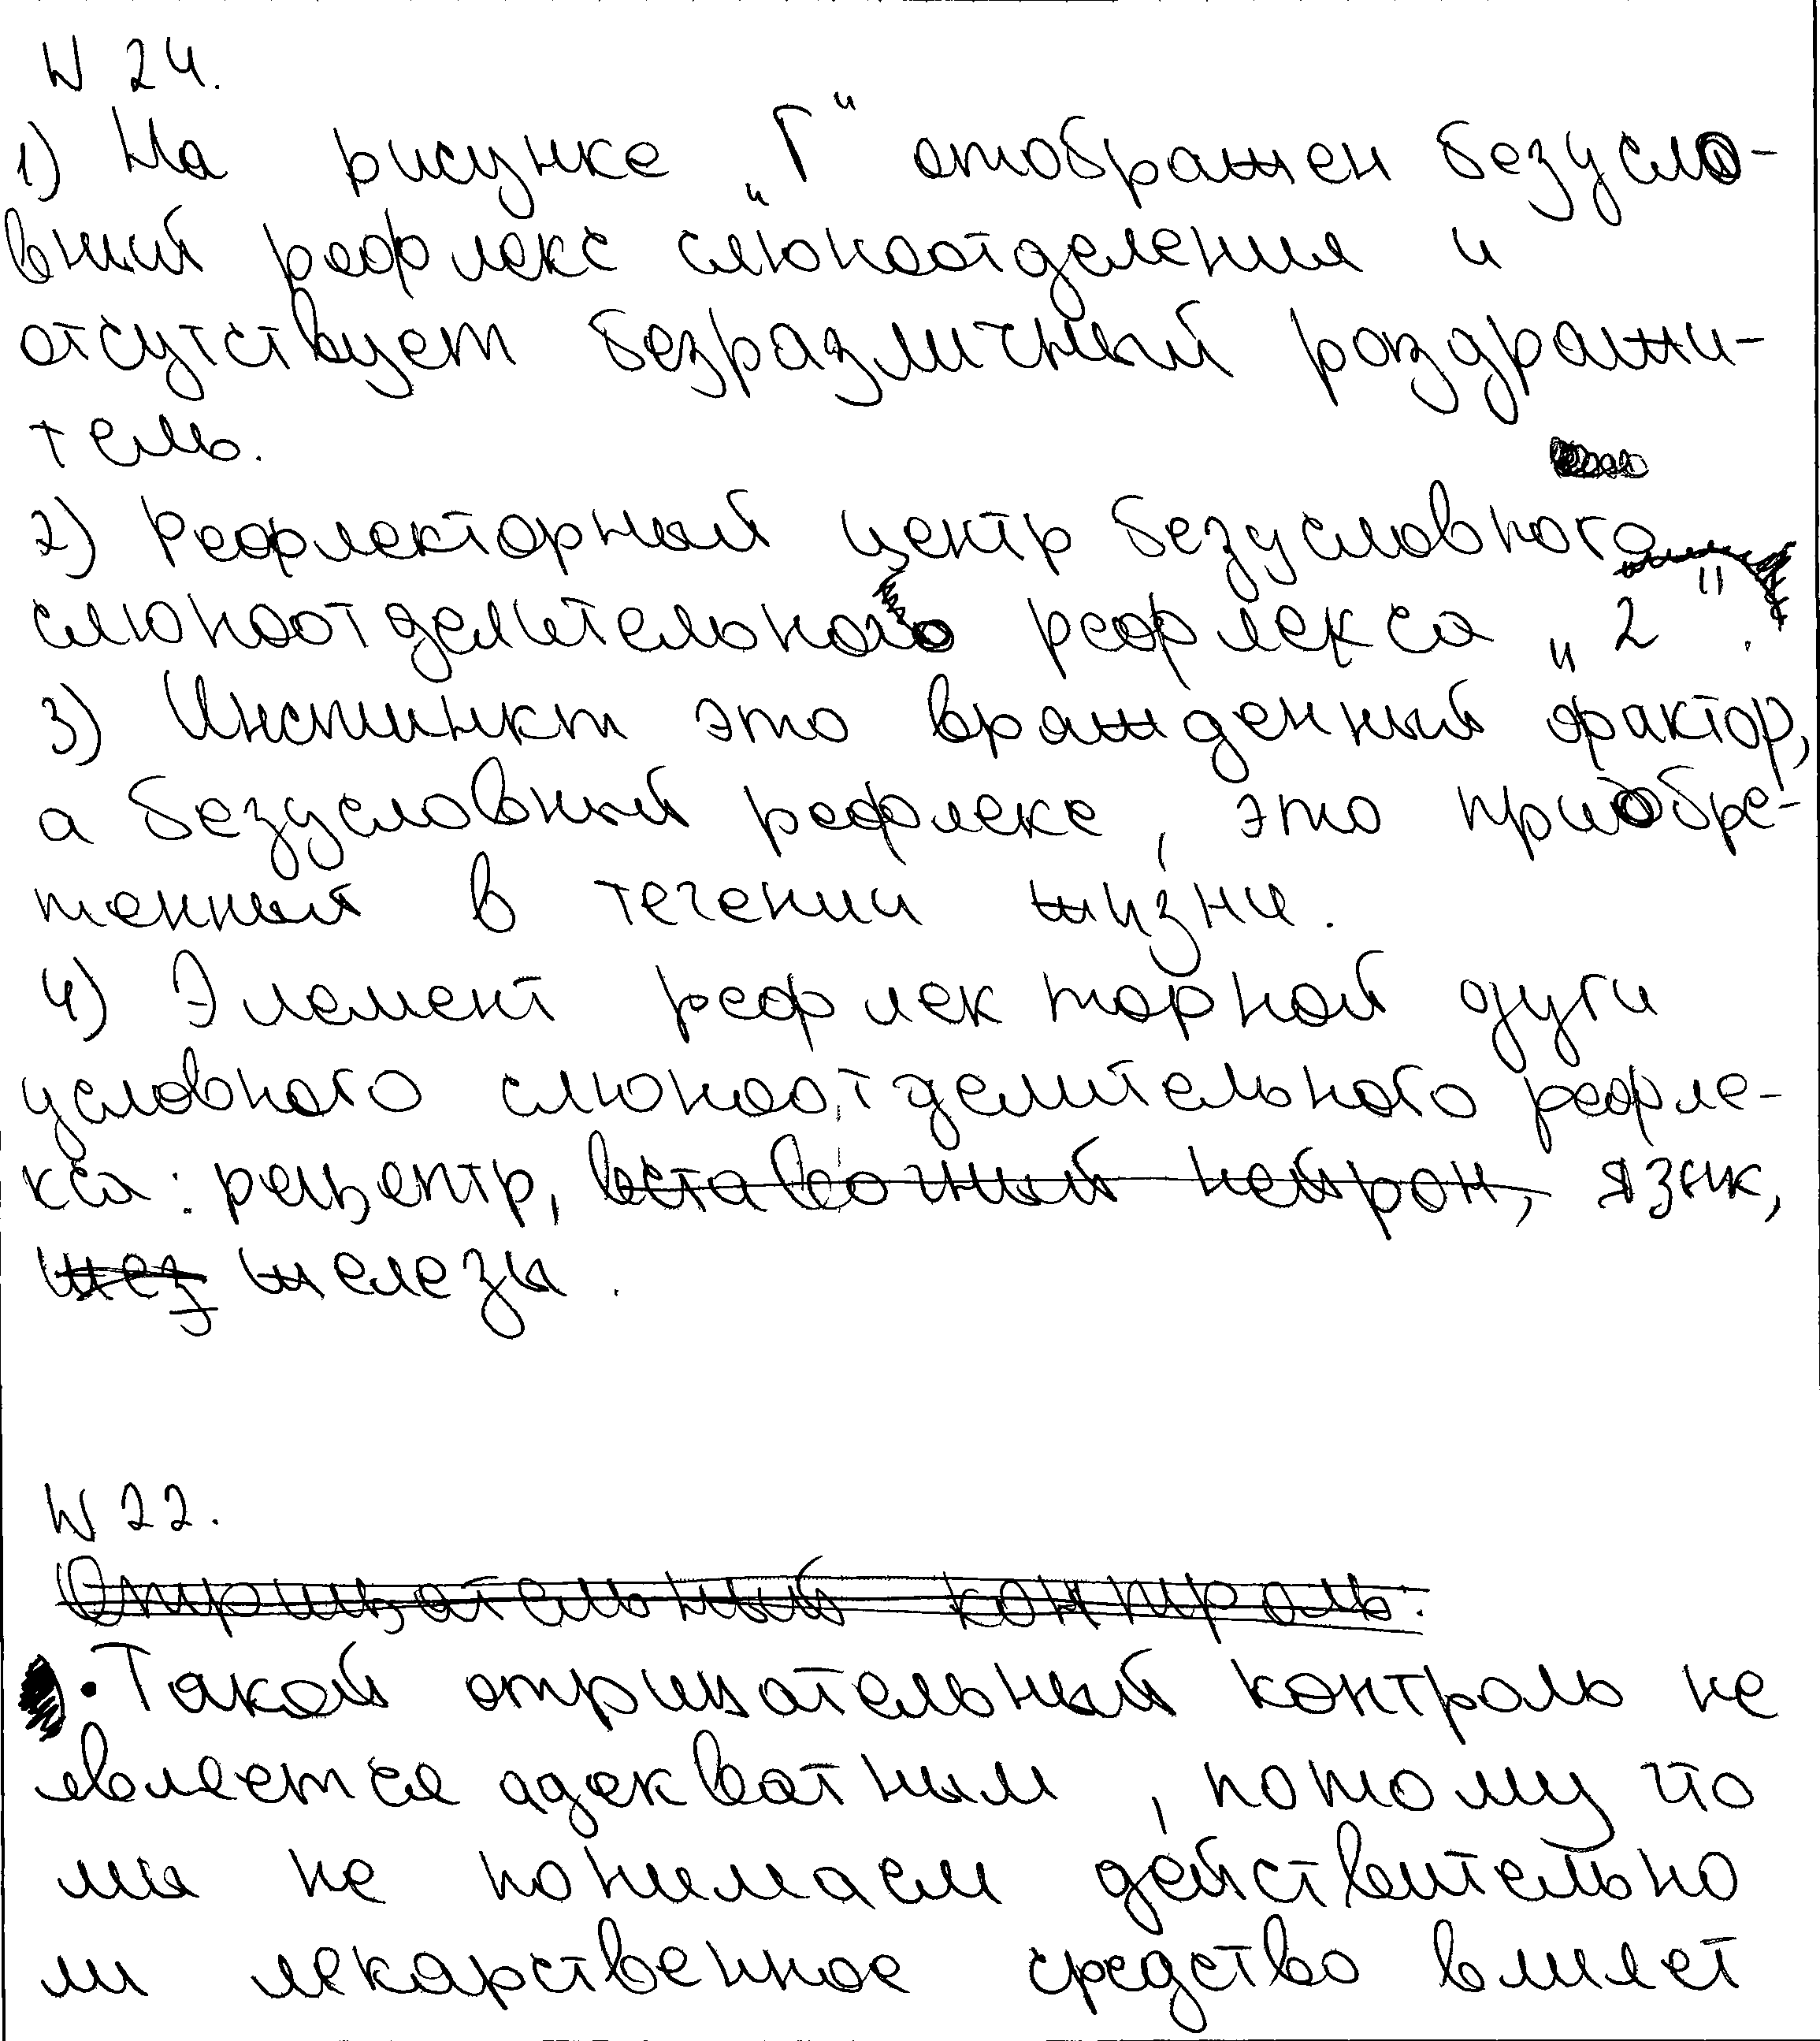 N 24.
1) На рисунке „Г“ отображен безусло-
вный рефлекс слюноотделения и
отсутствует безразличный раздражи-
тель.
2) Рефлекторный центр безусловного
слюноотделительного рефлекса „2".
3) Инстинкт это врожденный фактор,
а безусловный рефлекс, это приобре-
тенный в течении жизни.
4) Элемент рефлекторной дуги
условного слюноотделительного рефле-
кса: рецептр, вставочный нейрон, язык,
жез железы.
N 22.
Отрицательный контроль:
• Такой отрицательный контроль не
является адекватным, потому что
мы не понимаем действительно
ли лекарственное средство влияет